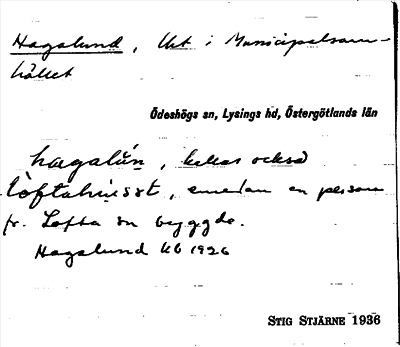 Hagalund, Ut i Municipalsam-
hället
Ödeshögs sn, Lysings hd, Östergötlands län
hagalu̇́n, kallas också
lòftahu̇sət, emedan en person
fr. Lofta sn byggde.
Hagalund kb 1926
STIG STJÄRNE 1936